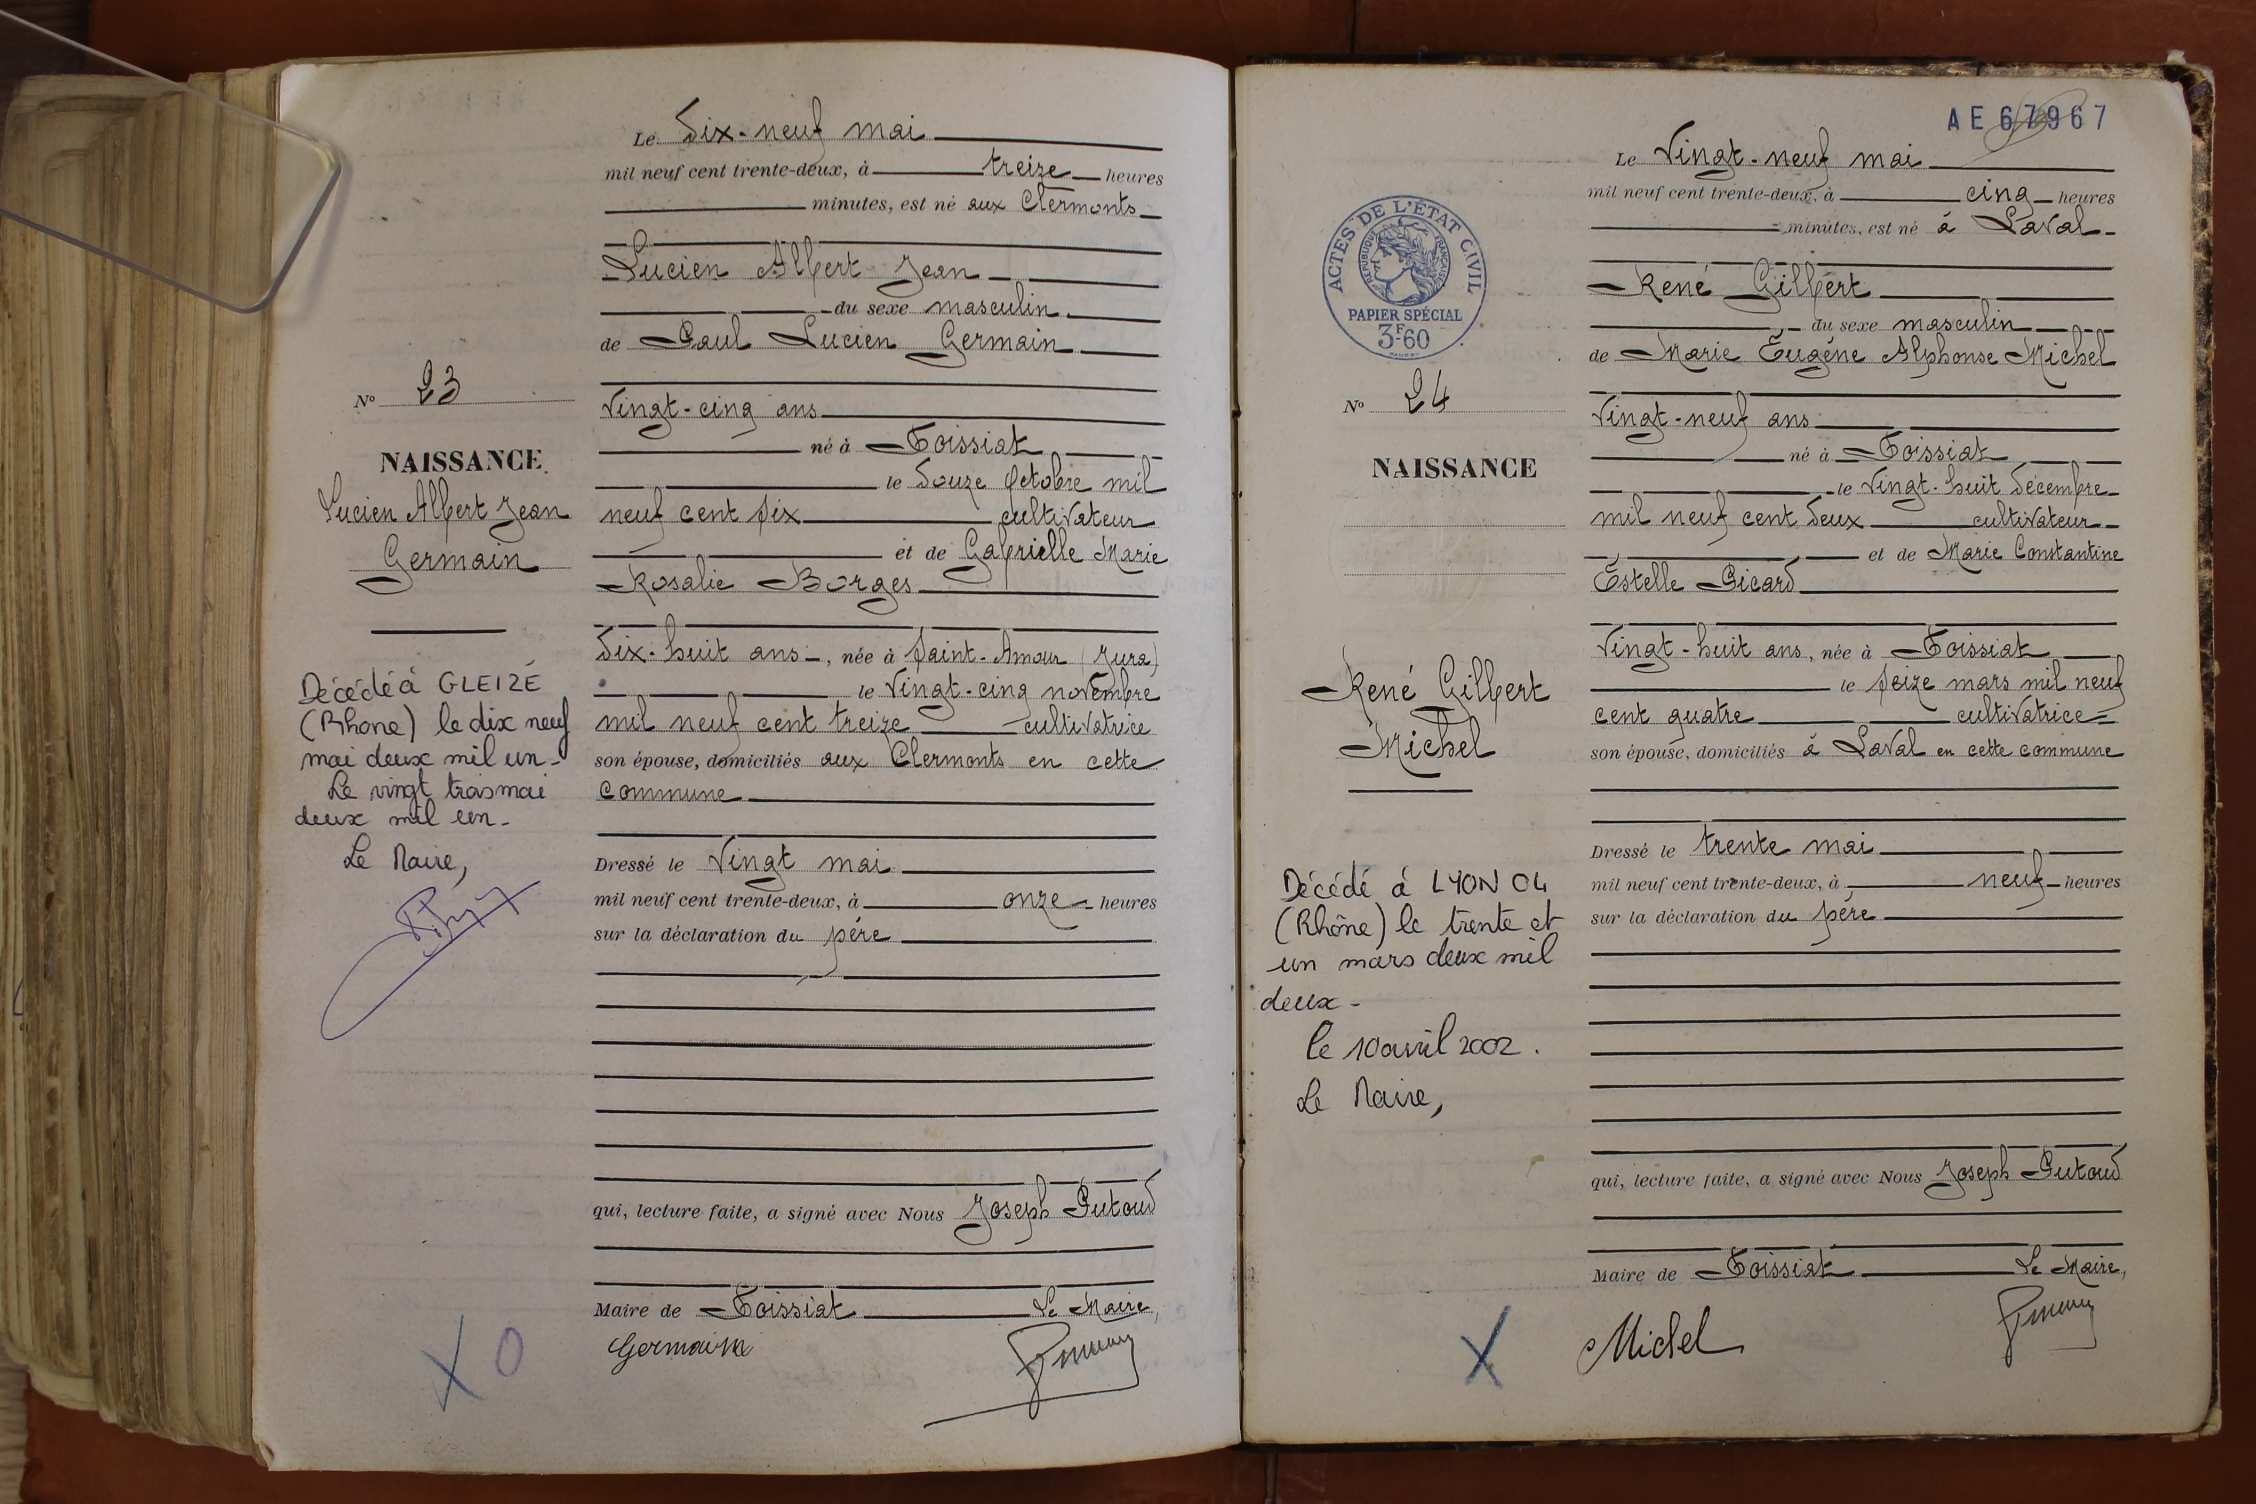 Le Dix-neuf mai
mil neuf cent trente-deux, à treize heures
minutes, est né aux Clermonts
Lucien Albert Jean
du sexe masculin
de Paul Lucien Germain
Vingt-cinq ans
né à Foissiat
le Douze Octobre mil
neuf cent six cultivateur
et de Gabrielle Marie
Rosalie Borges
Dix-huit ans, née à Saint-Amour (Jura)
le Vingt-cinq novembre
mil neuf cent treize cultivatrice
son épouse, domiciliés aux Clermonts en cette
commune
Dressé le Vingt mai
mil neuf cent trente-deux, à onze heures
sur la déclaration du père
qui, lecture faite, a signé avec Nous Joseph Putoud
Maire de Foissiat Le Maire,
Germain
No 23
NAISSANCE
Lucien Albert Jean
Germain
Décédé à GLEIZÉ
(Rhône) le dix neuf
mai deux mil un-
Le vingt trois mai
deux mil un-
Le Maire,
X O
AE 67967
Le Vingt-neuf mai
mil neuf cent trente-deux, à cinq heures
minutes, est né à Laval
René Gilbert
du sexe masculin
de Marie Eugène Alphonse Michel
Vingt-neuf ans
né à Foissiat
le Vingt-huit Décembre
mil neuf cent deux cultivateur
et de Marie Constantine
Estelle Picard
Vingt-huit ans, née à Foissiat
le seize mars mil neuf
cent quatre cultivatrice
son épouse, domiciliés à Laval en cette commune
Dressé le trente mai
mil neuf cent trente-deux, à neuf heures
sur la déclaration du père
qui, lecture faite, a signé avec Nous Joseph Putoud
Maire de Foissiat Le Maire,
Michel
ACTES DE L'ÉTAT CIVIL
RÉPUBLIQUE FRANÇAISE
PAPIER SPÉCIAL
3F60
No 24
NAISSANCE
René Gilbert
Michel
Décédé à LYON 04
(Rhône) le trente et
un mars deux mil
deux-
le 10 avril 2002.
Le Maire,
X